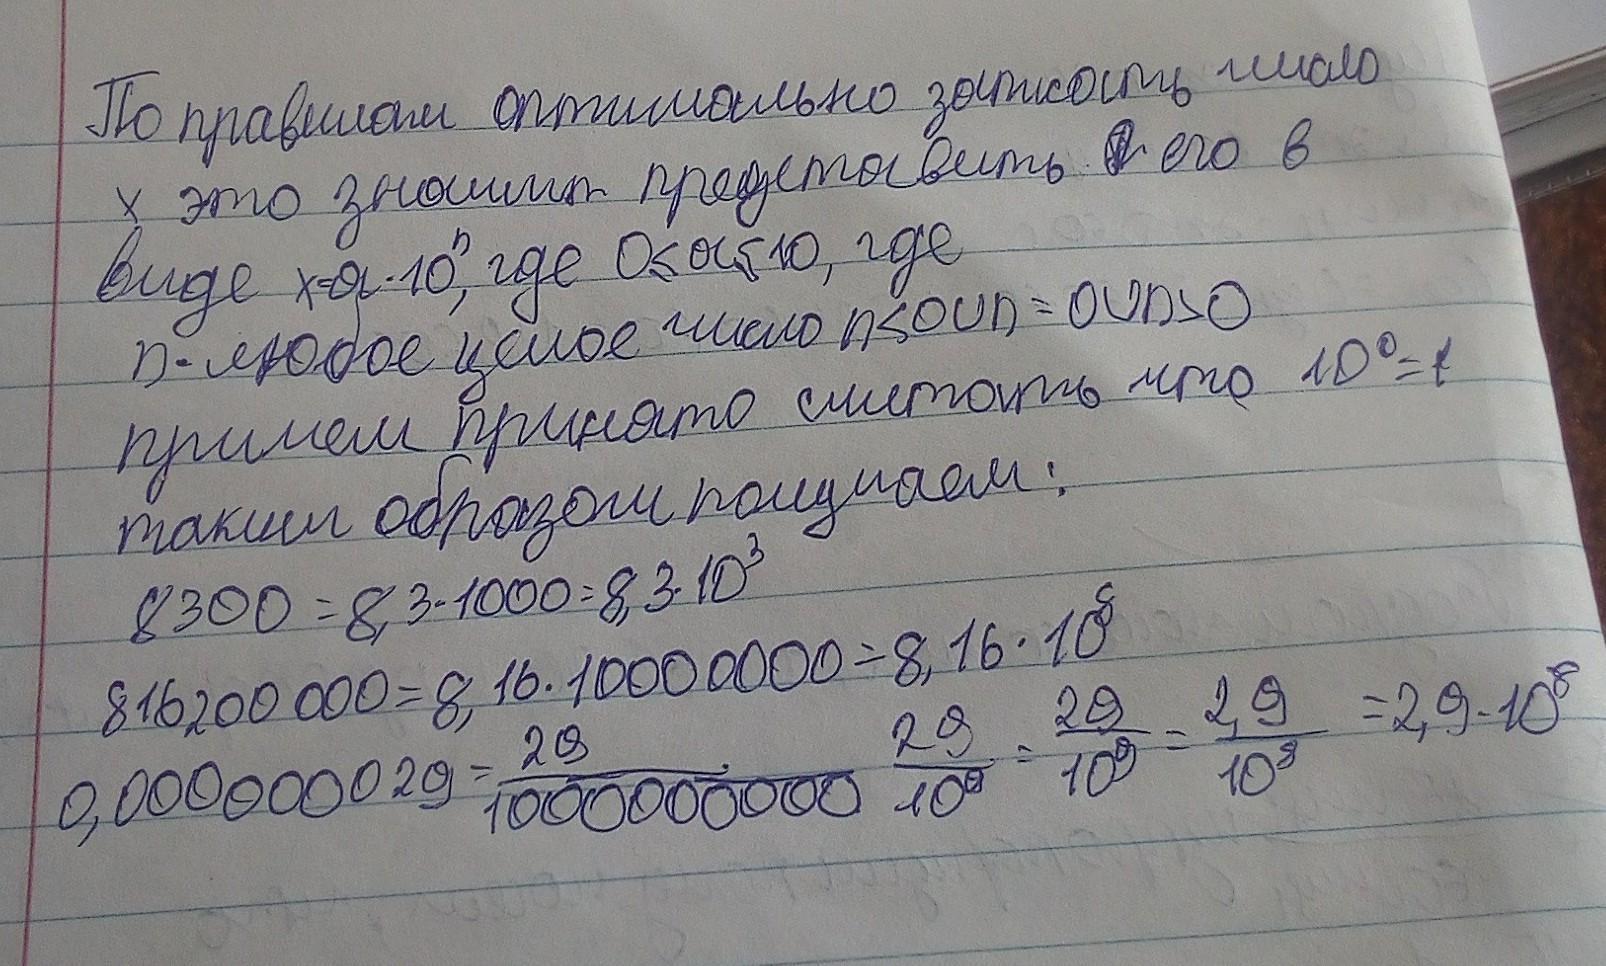 По правилам оптимально записать число
x это значит представить его в
виде x=a·10ⁿ, где 0≤a≤10, где
n-любое целое число n<0∪n=0∪n>0
примем принято считать что 10⁰=1
таким образом получаем:
8300=8,3·1000=8,3·10³
816200000=8,16·100000000=8,16·10⁸
0,000000029=29/1000000000 29/10⁹=29/10⁹=2,9/10⁹=2,9·10⁸